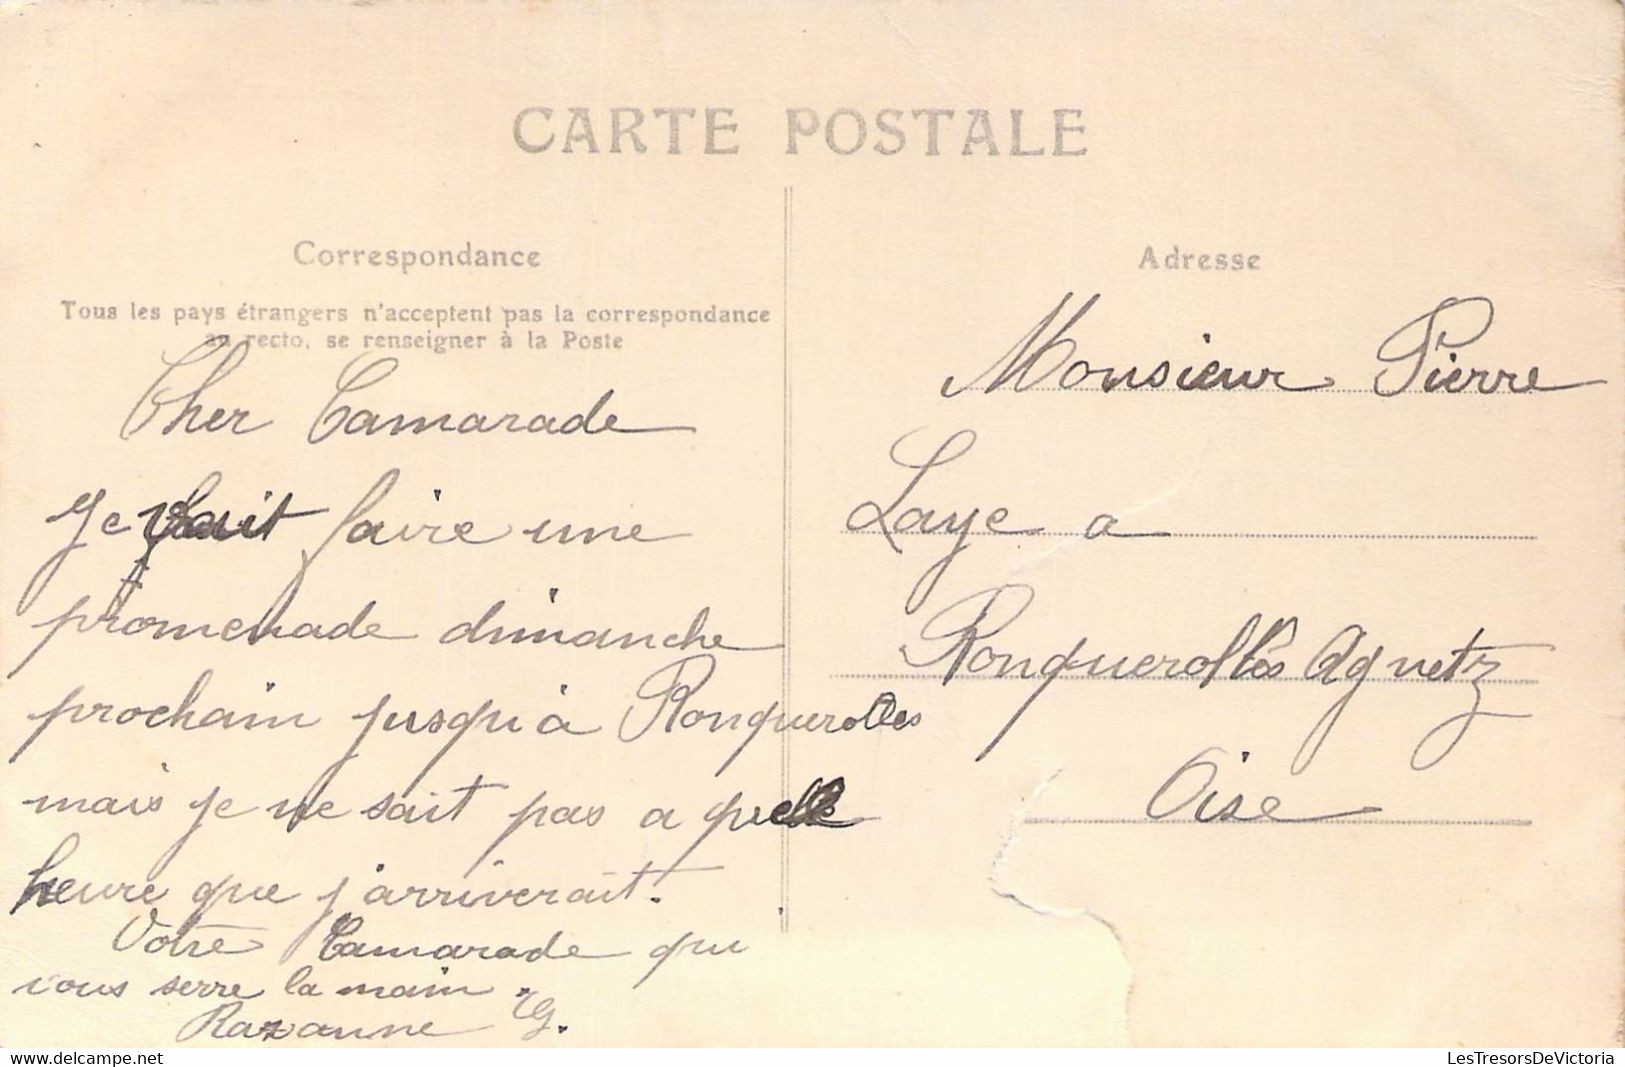 CARTE POSTALE
Correspondance
Tous les pays étrangers n'acceptent pas la correspondance
au recto, se renseigner à la Poste
Cher Camarade
Je vait faire une
promenade dimanche
prochain jusqu'à Ronquerolles
mais je ne sait pas a quelle
heure que j'arriverait.
Votre Camarade qui
vous serre la main.
Razanne G.
Adresse
Monsieur Pierre
Laye a
Ronquerolles Agnetz
Oise
LesTresorsDeVictoria